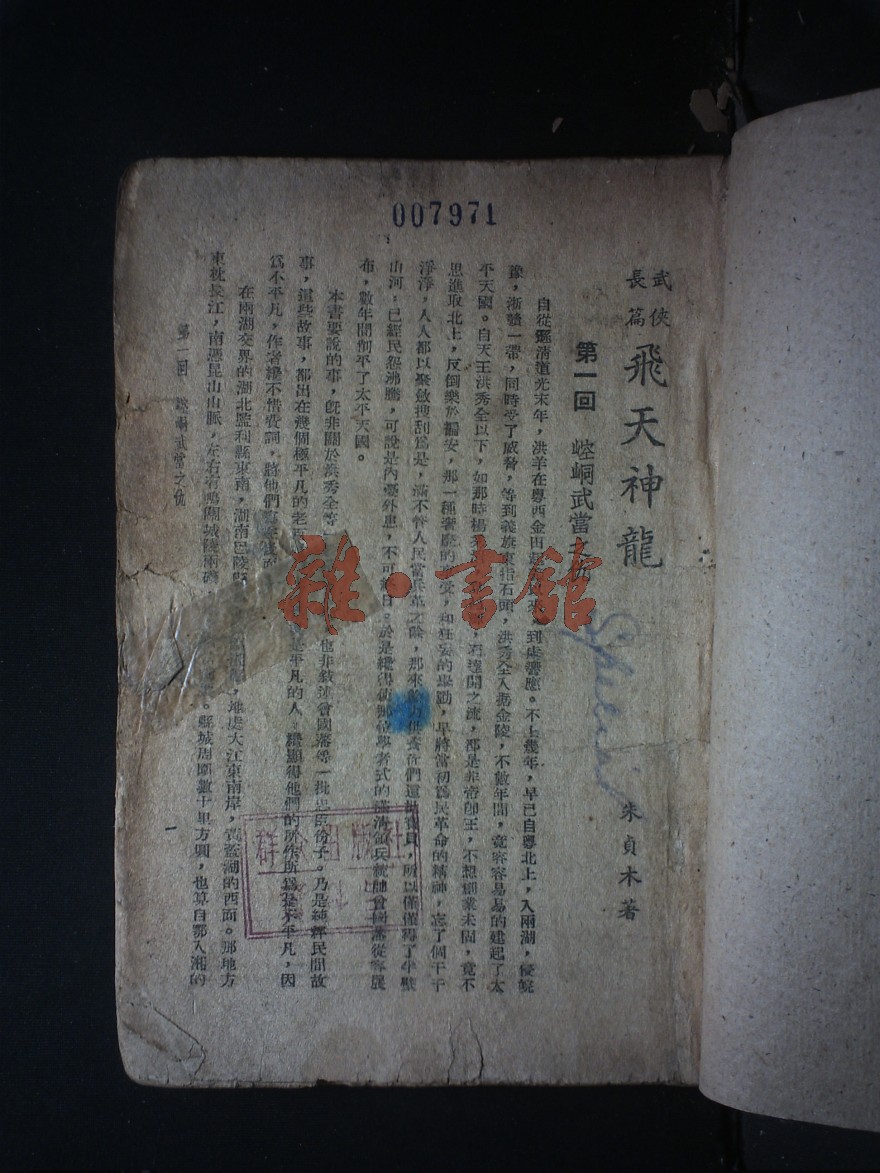 007971
武俠長篇
飛天神龍
朱貞木著
第一回　崆峒武當之仇
自從滿清道光末年，洪羊在粵西金田 到處響應。不上幾年，早已自粵北上，入兩湖，侵皖
豫，浙贛一帶，同時受了威脅，等到義旗東指石頭，洪秀全入據金陵，不數年間，竟容容易易的建起了太
平天國。自天王洪秀全以下，如那時楊 石達開之流，都是非帝卽王，不想創業未固，竟不
思進取北上，反倒樂於偏安，那一種奢靡的 受，和狂妄的舉動，早將當初爲民革命的精神，忘了個干干
淨淨，人人都以聚斂搜刮爲是，滿不管人民當兵革之餘，那來 供養你們這批寶貝，所以僅僅得了半壁
山河，已經民怨沸騰，可說是內憂外患，不可 日。於是纔得使那位學者式的滿清領兵統帥曾國藩從容展
布，數年間削平了太平天國。
本書要說的事，旣非關於洪秀全等 也非敍述曾國藩等一批忠臣份子。乃是純粹民間故
事，這些故事，都出在幾個極平凡的老百 是平凡的人，纔顯得他們的所作所爲是不平凡，因
爲不平凡，作者纔不惜費詞，將他們
在兩湖交界的湖北監利縣東南，湖南巴陵縣 ，地處大江東南岸， 湖的西面。那地方
東枕長江，南憑昆山山脈，左右有 城陵兩磯 縣城周圍數十里方圓，也算自鄂入湘的
第一回　崆峒武當之仇
一
雜·書館
群 出版社